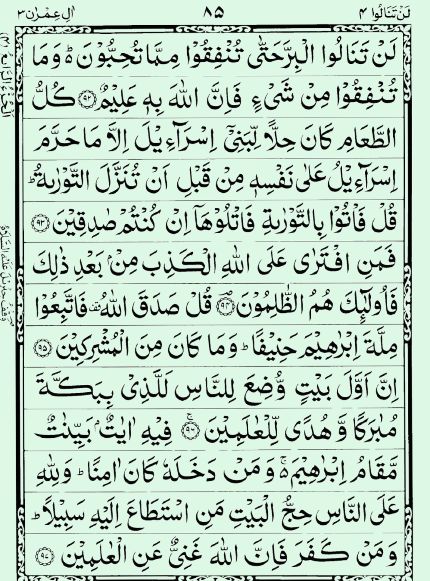 لَنْ تَنَالُوا ٤ ٨٥ اٰلِ عِمْرٰن ٣
لَنْ تَنَالُوا الْبِرَّ حَتّٰى تُنْفِقُوْا مِمَّا تُحِبُّوْنَ ۛ وَمَا
تُنْفِقُوْا مِنْ شَىْءٍ فَاِنَّ اللّٰهَ بِهٖ عَلِيْمٌ ﴿٩٢﴾ كُلُّ
الطَّعَامِ كَانَ حِلًّا لِّبَنِىْٓ اِسْرَآءِيْلَ اِلَّا مَا حَرَّمَ
اِسْرَآءِيْلُ عَلٰى نَفْسِهٖ مِنْ قَبْلِ اَنْ تُنَزَّلَ التَّوْرٰىةُ ؕ
قُلْ فَاْتُوْا بِالتَّوْرٰىةِ فَاتْلُوْهَاۤ اِنْ كُنْتُمْ صٰدِقِيْنَ ﴿٩٣﴾
فَمَنِ افْتَرٰى عَلَى اللّٰهِ الْكَذِبَ مِنْۢ بَعْدِ ذٰلِكَ
فَاُولٰٓئِكَ هُمُ الظّٰلِمُوْنَ ﴿٩٤﴾ قُلْ صَدَقَ اللّٰهُ فَاتَّبِعُوْا
مِلَّةَ اِبْرٰهِيْمَ حَنِيْفًا ؕ وَمَا كَانَ مِنَ الْمُشْرِكِيْنَ ﴿٩٥﴾
اِنَّ اَوَّلَ بَيْتٍ وُّضِعَ لِلنَّاسِ لَلَّذِىْ بِبَكَّةَ
مُبٰرَكًا وَّهُدًى لِّلْعٰلَمِيْنَ ﴿٩٦﴾ فِيْهِ اٰيٰتٌۢ بَيِّنٰتٌ
مَّقَامُ اِبْرٰهِيْمَ ۚ وَمَنْ دَخَلَهٗ كَانَ اٰمِنًا ؕ وَلِلّٰهِ
عَلَى النَّاسِ حِجُّ الْبَيْتِ مَنِ اسْتَطَاعَ اِلَيْهِ سَبِيْلًا ؕ
وَمَنْ كَفَرَ فَاِنَّ اللّٰهَ غَنِىٌّ عَنِ الْعٰلَمِيْنَ ﴿٩٧﴾